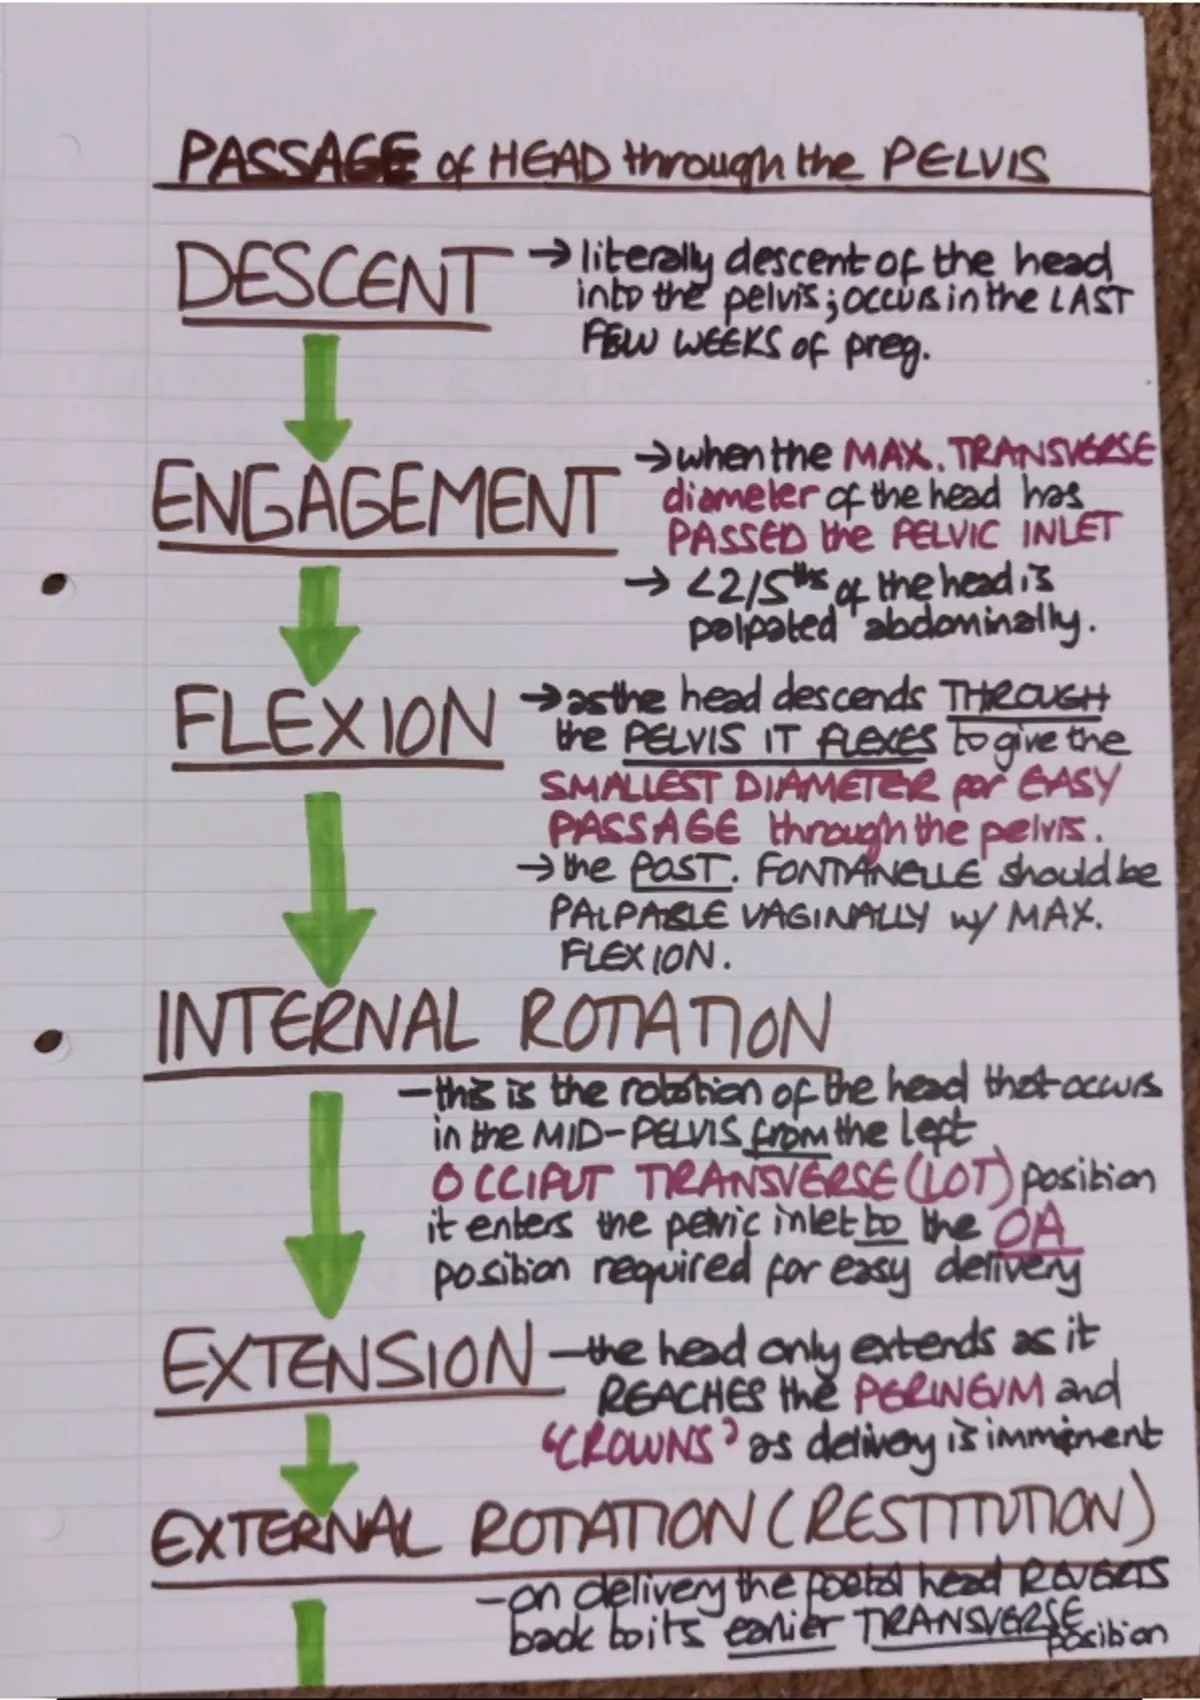 PASSAGE of HEAD through the PELVIS
DESCENT → literally descent of the head
into the pelvis; occurs in the LAST
FEW WEEKS of preg.
ENGAGEMENT → when the MAX. TRANSVERSE
diameter of the head has
PASSED the PELVIC INLET
→ <2/5ths of the head is
palpated abdominally.
FLEXION → as the head descends THROUGH
the PELVIS IT FLEXES to give the
SMALLEST DIAMETER for EASY
PASSAGE through the pelvis.
→ the POST. FONTANELLE should be
PALPABLE VAGINALLY w/ MAX.
FLEXION.
INTERNAL ROTATION
- this is the rotation of the head that occurs
in the MID-PELVIS from the left
OCCIPUT TRANSVERSE (LOT) position
it enters the pelvic inlet to the OA
position required for easy delivery
EXTENSION - the head only extends as it
REACHES the PERINEUM and
'CROWNS' as delivery is imminent
EXTERNAL ROTATION (RESTITUTION)
- on delivery the foetal head REVERTS
back to its earlier TRANSVERSE
position